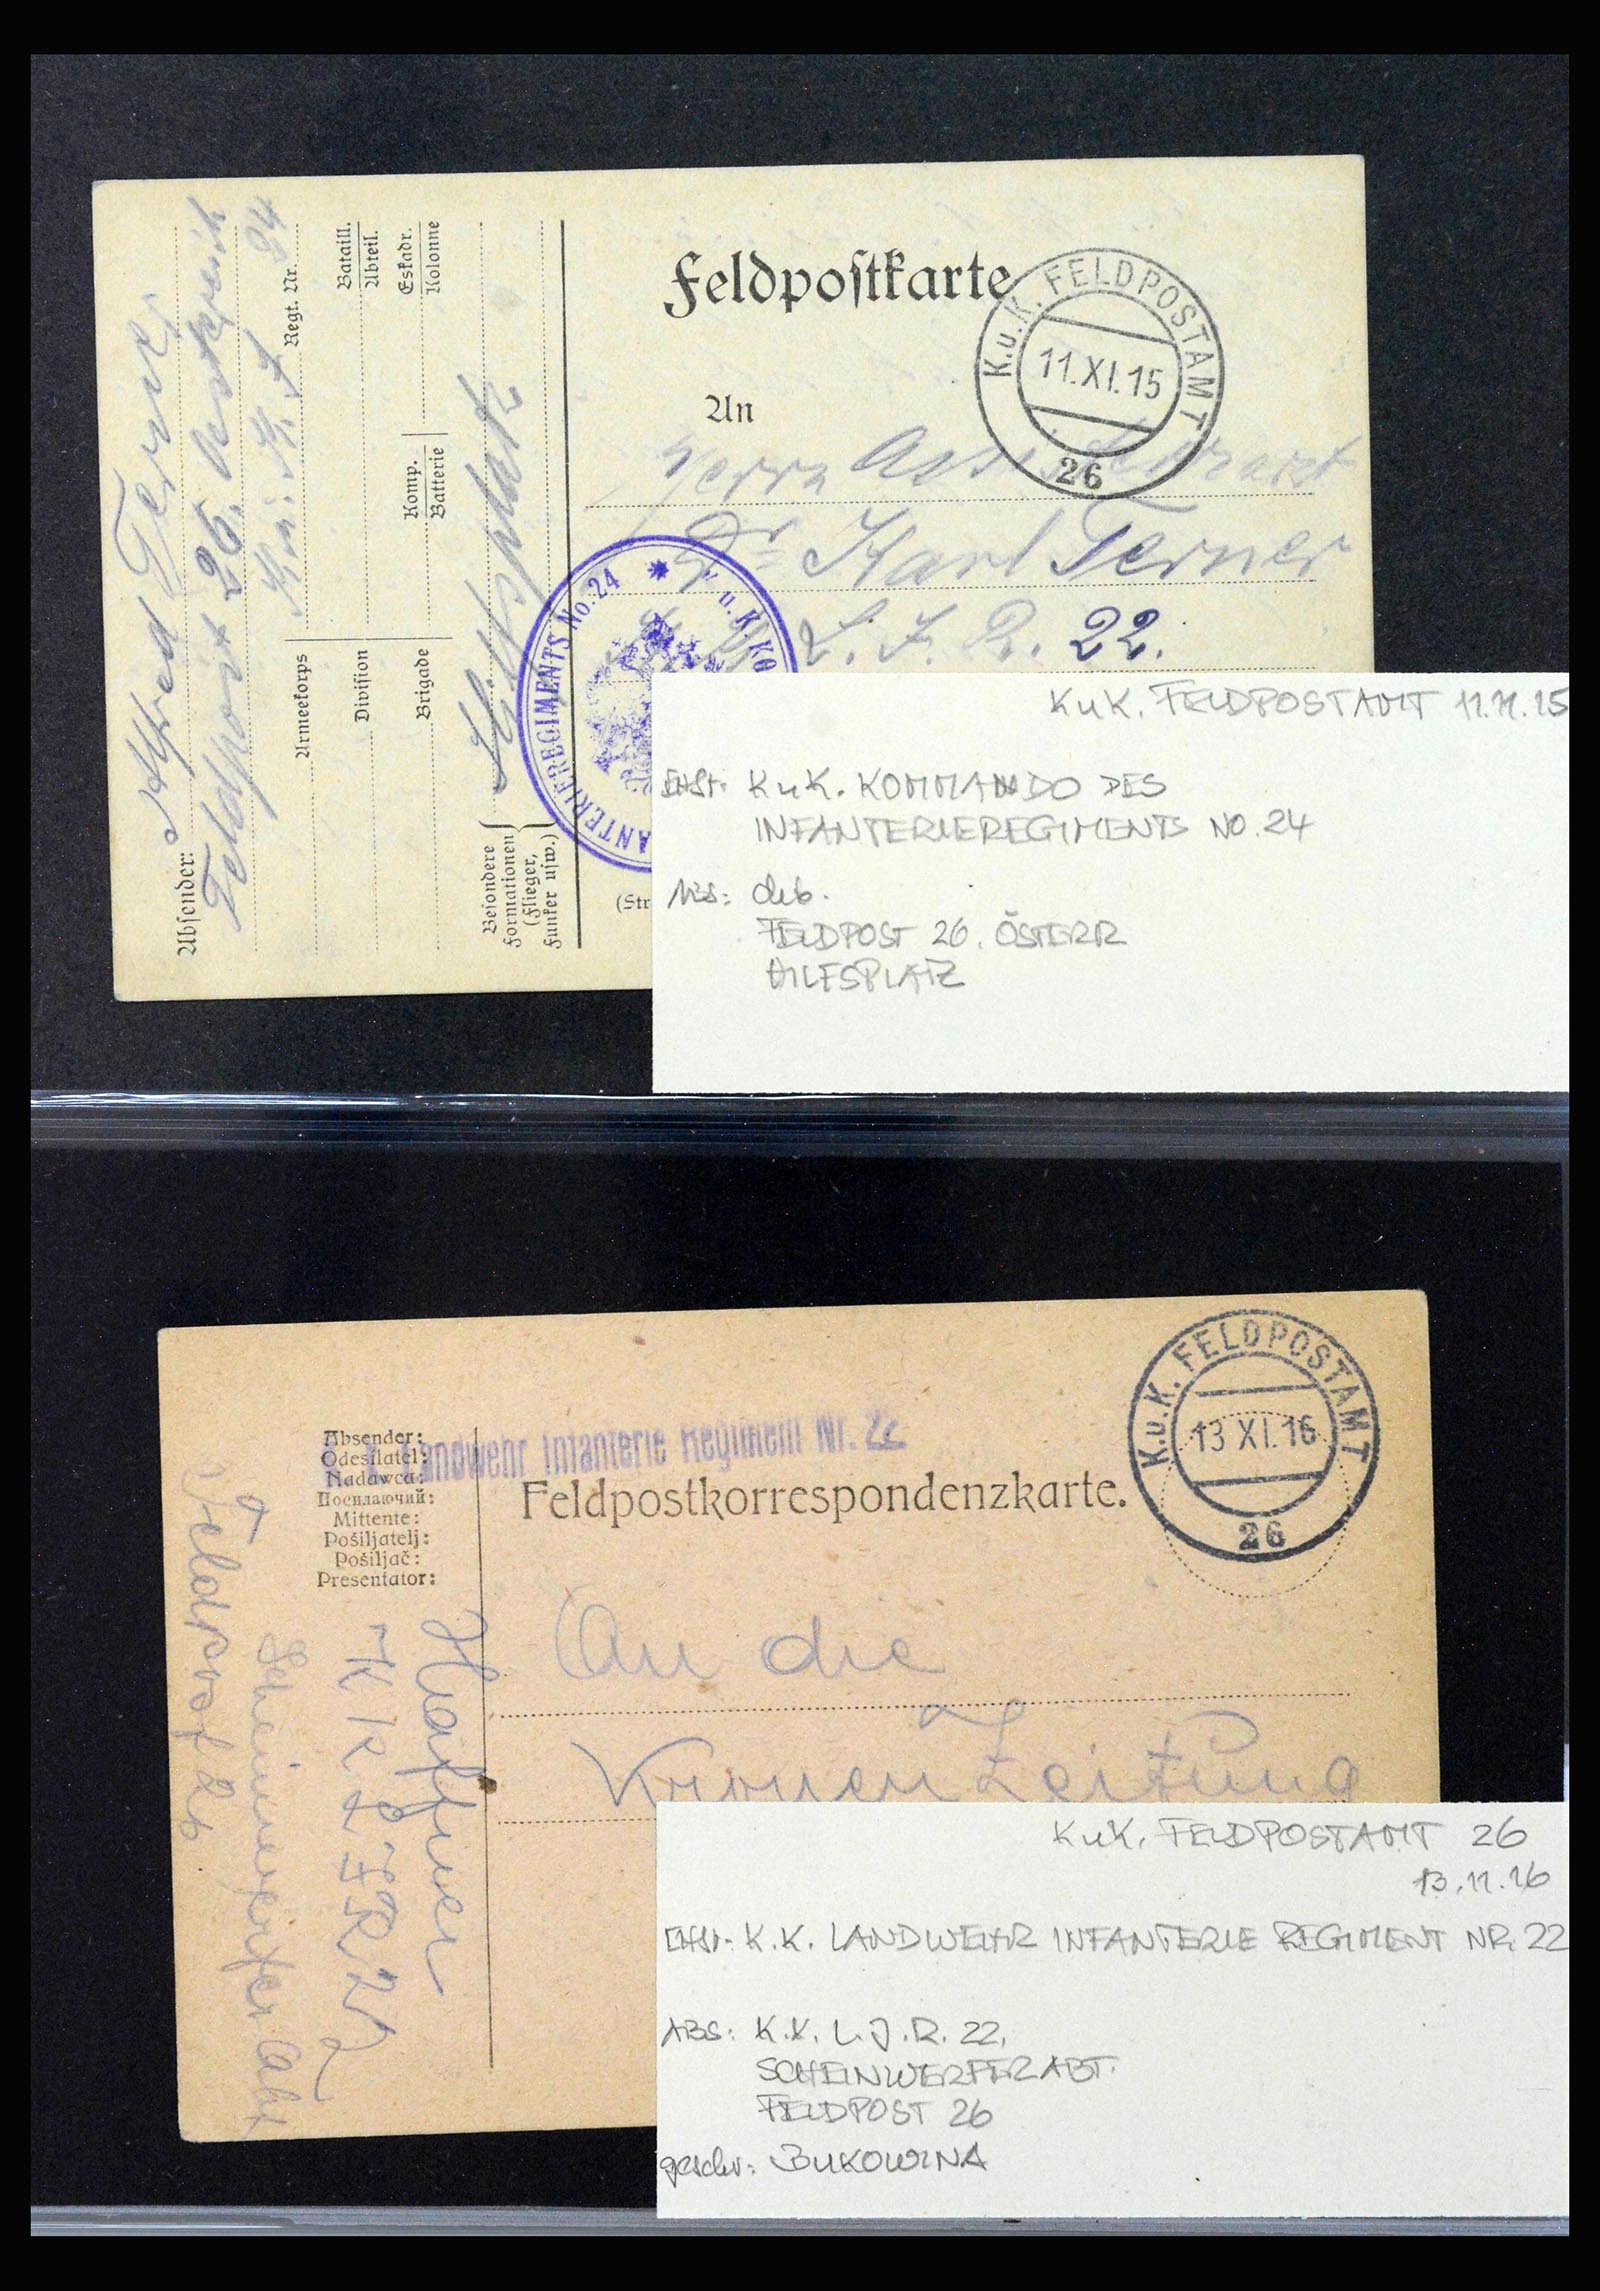 Feldpostkarte
K.u.K. FELDPOSTAMT
11.XI.15
26
An
Herrn Assistenzarzt
Dr Karl Terner
L. I. R. 22.
Absender: Alfred Terner
Feldpost 26.
Regt. Nr. 24
Armeekorps
Bataill.
Abteil.
Division
Eskadr.
Kolonne
Brigade
Komp.
Batterie
Hilfsplatz
Besondere
Formationen
(Flieger,
Funker usw.)
(Str
u. K. KO
ANTERIEREGIMENTS No. 24
KuK. FELDPOSTAMT 11.11.15
KuK. KOMMANDO DES
INFANTERIEREGIMENTS NO. 24
ABS:
FELDPOST 26, ÖSTERR
HILFSPLATZ
Landwehr Infanterie Regiment Nr. 22
Absender:
Odesílatel:
Nadawca:
Посилаючий:
Mittente:
Pošiljatelj:
Pošiljač:
Presentator:
Feldpostkorrespondenzkarte.
K.u.K. FELDPOSTAMT
13 XI.16
26
An die
Kronen Zeitung
Hafner
K K L I R 22
Scheinwerfer Abt
Feldpost 26
KuK. FELDPOSTAMT 26
13.11.16
K.K. LANDWEHR INFANTERIE REGIMENT NR. 22
ABS: K.K. L.J.R. 22,
SCHEINWERFERABT.
FELDPOST 26
geschr: BUKOWINA